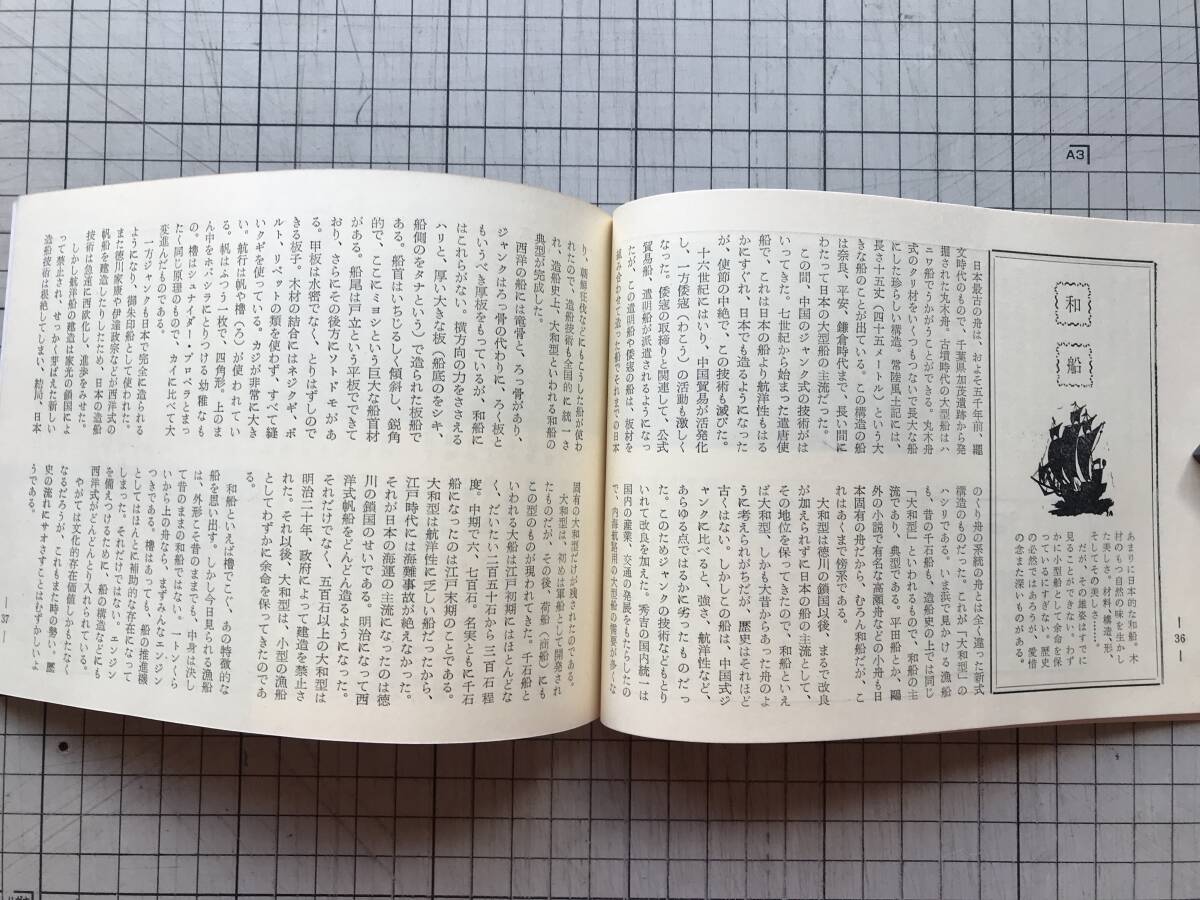 和船
あまりに日本的な和船。木
材のもつ自然の味を生かし
た美しい材料、構造、形、
そしてその美しさは…。
だが、その雄姿はすでに
見ることができない。わず
かに小型船として余命を保
っているにすぎない。歴史
の必然ではあろうが、愛惜
の念また深いものがある。
日本最古の舟は、およそ五千年前、縄
文時代のもので、千葉県加茂遺跡から発
掘された丸木舟。古墳時代の大型船はハ
ニワ船でうかがうことができる。丸木舟
式のクリ材をいくつもつないで長大な船
にした珍らしい構造。常陸風土記には、
長さ十五丈(四十五メートル)という大
きな船のことが出ている。この構造の船
は奈良、平安、鎌倉時代まで、長い間に
わたって日本の大型船の主流だった。
この間、中国のジャンク式の技術がは
いってきた。七世紀から始まった遣唐使
船で、これは日本の船より航洋性もはる
かにすぐれ、日本でも造るようになった
が、使節の中絶で、この技術も滅びた。
十六世紀にはいり、中国貿易が活発化
し、一方倭寇(わこう)の活動も激しく
なった。倭寇の取締りと関連して、公式
貿易船、遣明船が派遣されるようになっ
たが、この遣明船や倭寇の船は、板材を
組み合わせて造った船でそれまでの日本
のくり舟の系統の舟とは全く違った新式
構造のものだった。これが「大和型」の
ハシリである。いま浜で見かける漁船
も、昔の千石船も、造船史の上では同じ
「大和型」といわれるもので、和船の主
流であり、典型である。平田船とか、鷗
外の小説で有名な高瀬舟などの小舟も日
本固有の舟だから、むろん和船だが、こ
れはあくまで傍系である。
大和型は徳川の鎖国以後、まるで改良
が加えられずに日本の船の主流として、
その地位を保ってきたので、和船といえ
ば大和型、しかも大昔からあった舟のよ
うに考えられがちだが、歴史はそれほど
古くはない。しかしこの船は、中国式ジ
ャンクに比べると、強さ、航洋性など、
あらゆる点ではるかに劣ったものだっ
た。このためジャンクの技術などもとり
いれて改良を加えた。秀吉の国内統一は
国内の産業、交通の発展をもたらしたの
で、内海航路用の大型船の需要が多くな
—36—
り、朝鮮征伐などにもこうした船が使わ
れたので、造船技術も全国的に統一さ
れ、造船史上、大和型といわれる和船の
典型が完成した。
西洋の船には竜骨と、ろっ骨があり、
ジャンクはろっ骨の代わりに、ろく板と
もいうべき厚板をもっているが、和船に
はこれらがない。横方向の力をささえる
ハリと、厚い大きな板(船底のをシキ、
船側のをタナという)で造られた板船で
ある。船首はいちじるしく傾斜し、鋭角
的で、ここにミヨシという巨大な船首材
がある。船尾は戸立という平板でできて
おり、さらにその後方にソトドモがあ
る。甲板は水密でなく、とりはずしので
きる板子。木材の結合にはネジクギ、ボ
ルト、リベットの類を使わず、すべて縫
いクギを使っている。カジが非常に大き
い。航行は帆や櫓(ろ)が使われてい
る。帆はふつう一枚で、四角形。上のま
ん中をホバシラにとりつける幼稚なも
の。櫓はシュナイダー・プロペラとまっ
たく同じ原理のもので、カイに比べて大
変進んだものである。
一方ジャンクも日本で完全に造られる
ようになり、御朱印船として使われた。
また徳川家康や伊達政宗などが西洋式の
帆船を建造したりしたため、日本の造船
技術は急速に西欧化し、進歩をみせた。
しかし航洋船の建造は家光の鎖国によ
って禁止され、せっかく芽ばえた新しい
造船技術は根絶してしまい、結局、日本
固有の大和型だけが残されたのである。
大和型は、初めは軍船として開発され
たものだが、その後、荷船(商船)にも
この型のものが現われてきた。千石船と
いわれる大船は江戸初期にはほとんどな
く、だいたい二百五十石から三百石程
度。中期で六、七百石。名実ともに千石
船になったのは江戸末期のことである。
大和型は航洋性に乏しい船だったから、
江戸時代には海難事故が絶えなかった。
それが日本の海運の主流になったのは徳
川の鎖国のせいである。明治になって西
洋式帆船をどんどん造るようになった。
それだけでなく、五百石以上の大和型は
明治二十年、政府によって建造を禁止さ
れた。それ以後、大和型は、小型の漁船
としてわずかに余命を保ってきたのであ
る。
和船といえば櫓でこぐ、あの特徴的な
船を思い出す。しかし今日見られる漁船
は、外形こそ昔のままでも、中身は決し
て昔のままの和船ではない。一トンくら
いから上の舟なら、まずみんなエンジン
つきである。櫓はあっても、船の推進機
としてはほんとに補助的な存在になって
しまった。それだけではない。エンジン
を備えつけるために、船の構造などにも
西洋式がどんどんとり入れられている。
やがては文化的存在価値しかもたなく
なるだろうが、これもまた時の勢い。歴
史の流れにサオさすことはむずかしいよ
うである。
—37—
A3